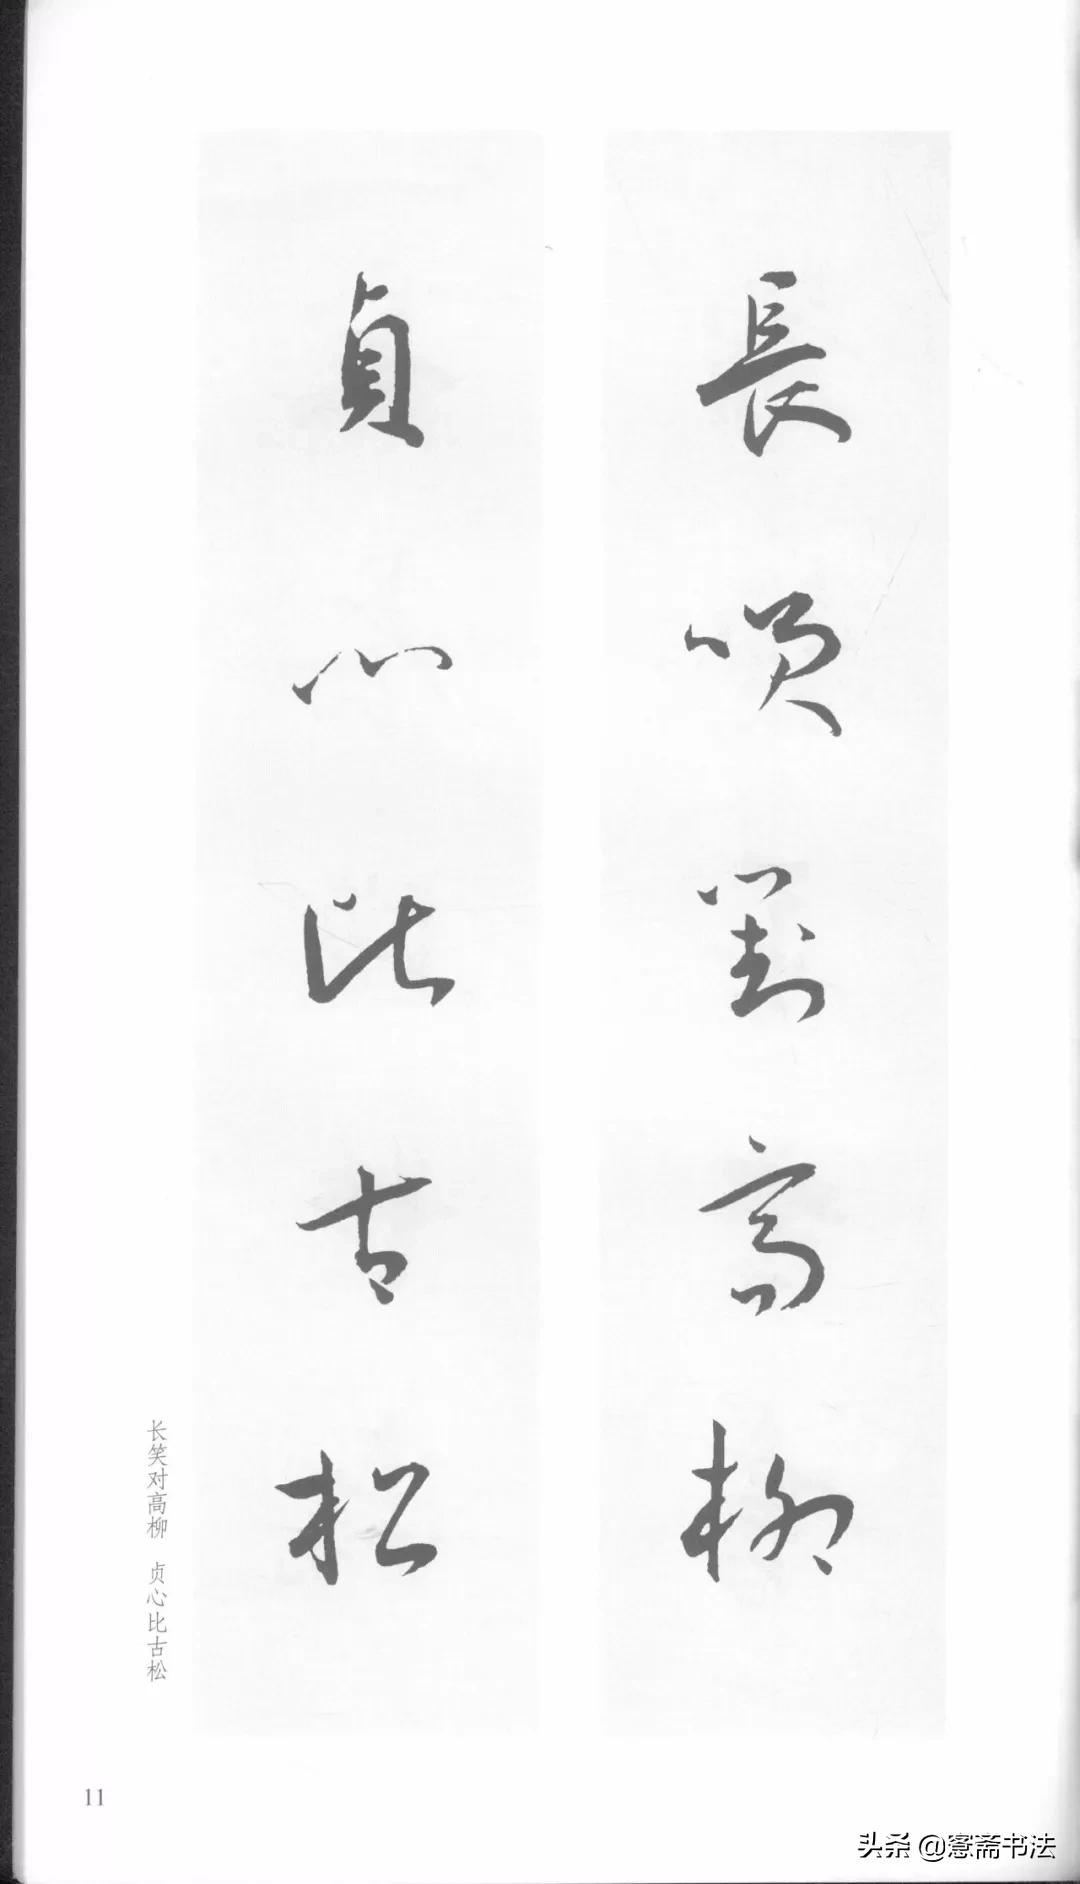 長咲對高柳
貞心比古松
长笑对高柳 贞心比古松
11
头条 @愙斋书法